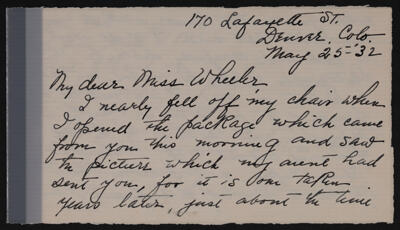 170 Lafayette St.
Denver. Colo.
May 25-'32
My dear Miss Wheeler
I nearly fell off my chair when
I opened the package which came
from you this morning and saw
the picture which my aunt had
sent you, for it is one taken
years later, just about the time